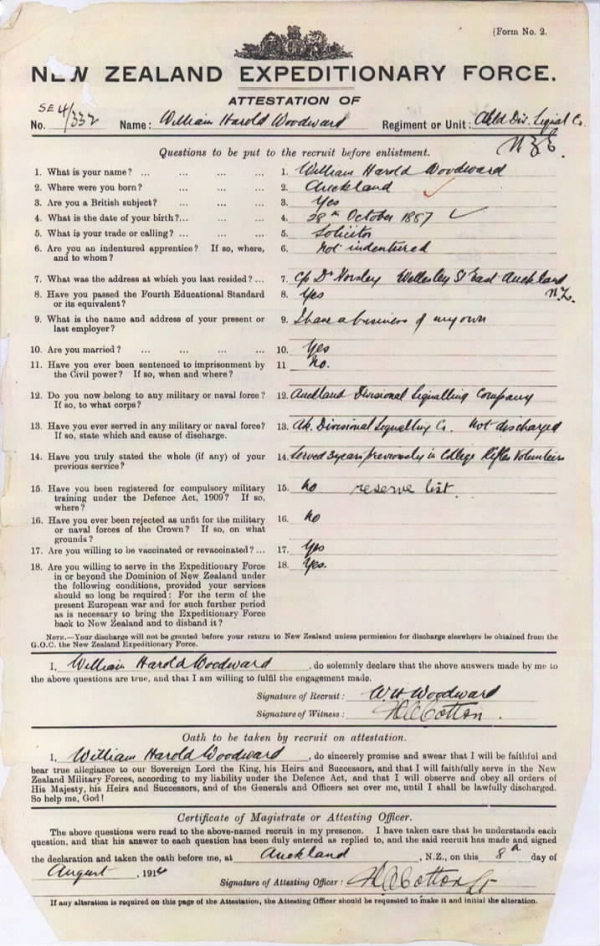 (Form No. 2.
NEW ZEALAND EXPEDITIONARY FORCE.
ATTESTATION OF
No. SE 4/332 Name: William Harold Woodward Regiment or Unit: Akld Div. Signal Co.
N.Z.E.
Questions to be put to the recruit before enlistment.
1. What is your name? ... ... ... 1. William Harold Woodward
2. Where were you born? ... ... 2. Auckland
3. Are you a British subject? ... ... 3. Yes
4. What is the date of your birth?... ... 4. 28th October 1887
5. What is your trade or calling? ... ... 5. Solicitor
6. Are you an indentured apprentice? If so, where, 6. Not indentured
and to whom?
7. What was the address at which you last resided? ... 7. C/o Dr Horsley Wellesley St East Auckland
N.Z.
8. Have you passed the Fourth Educational Standard 8. Yes
or its equivalent?
9. What is the name and address of your present or 9. I have a business of my own
last employer?
10. Are you married? ... ... ... ... 10. Yes
11. Have you ever been sentenced to imprisonment by 11 No.
the Civil power? If so, when and where?
12. Do you now belong to any military or naval force? 12. Auckland Divisional Signalling Company
If so, to what corps?
13. Have you ever served in any military or naval force? 13. Ak. Divisional Signalling Co. Not discharged
If so, state which and cause of discharge.
14. Have you truly stated the whole (if any) of your 14. Served 3 years previously in College Rifles Volunteers
previous service?
15. Have you been registered for compulsory military 15. No reserve list.
training under the Defence Act, 1909? If so,
where?
16. Have you ever been rejected as unfit for the military 16. No
or naval forces of the Crown? If so, on what
grounds?
17. Are you willing to be vaccinated or revaccinated? ... 17. Yes
18. Are you willing to serve in the Expeditionary Force 18. Yes.
in or beyond the Dominion of New Zealand under
the following conditions, provided your services
should so long be required: For the term of the
present European war and for such further period
as is necessary to bring the Expeditionary Force
back to New Zealand and to disband it?
NOTE.—Your discharge will not be granted before your return to New Zealand unless permission for discharge elsewhere be obtained from the
G.O.C. the New Zealand Expeditionary Force.
I, William Harold Woodward, do solemnly declare that the above answers made by me to
the above questions are true, and that I am willing to fulfil the engagement made.
Signature of Recruit: W H Woodward
Signature of Witness: Cotton.
Oath to be taken by recruit on attestation.
I, William Harold Woodward, do sincerely promise and swear that I will be faithful and
bear true allegiance to our Sovereign Lord the King, his Heirs and Successors, and that I will faithfully serve in the New
Zealand Military Forces, according to my liability under the Defence Act, and that I will observe and obey all orders of
His Majesty, his Heirs and Successors, and of the Generals and Officers set over me, until I shall be lawfully discharged.
So help me, God!
Certificate of Magistrate or Attesting Officer.
The above questions were read to the above-named recruit in my presence. I have taken care that he understands each
question, and that his answer to each question has been duly entered as replied to, and the said recruit has made and signed
the declaration and taken the oath before me, at Auckland, N.Z., on this 8th day of
August, 1914
Signature of Attesting Officer: Cotton Lt
If any alteration is required on this page of the Attestation, the Attesting Officer should be requested to make it and initial the alteration.